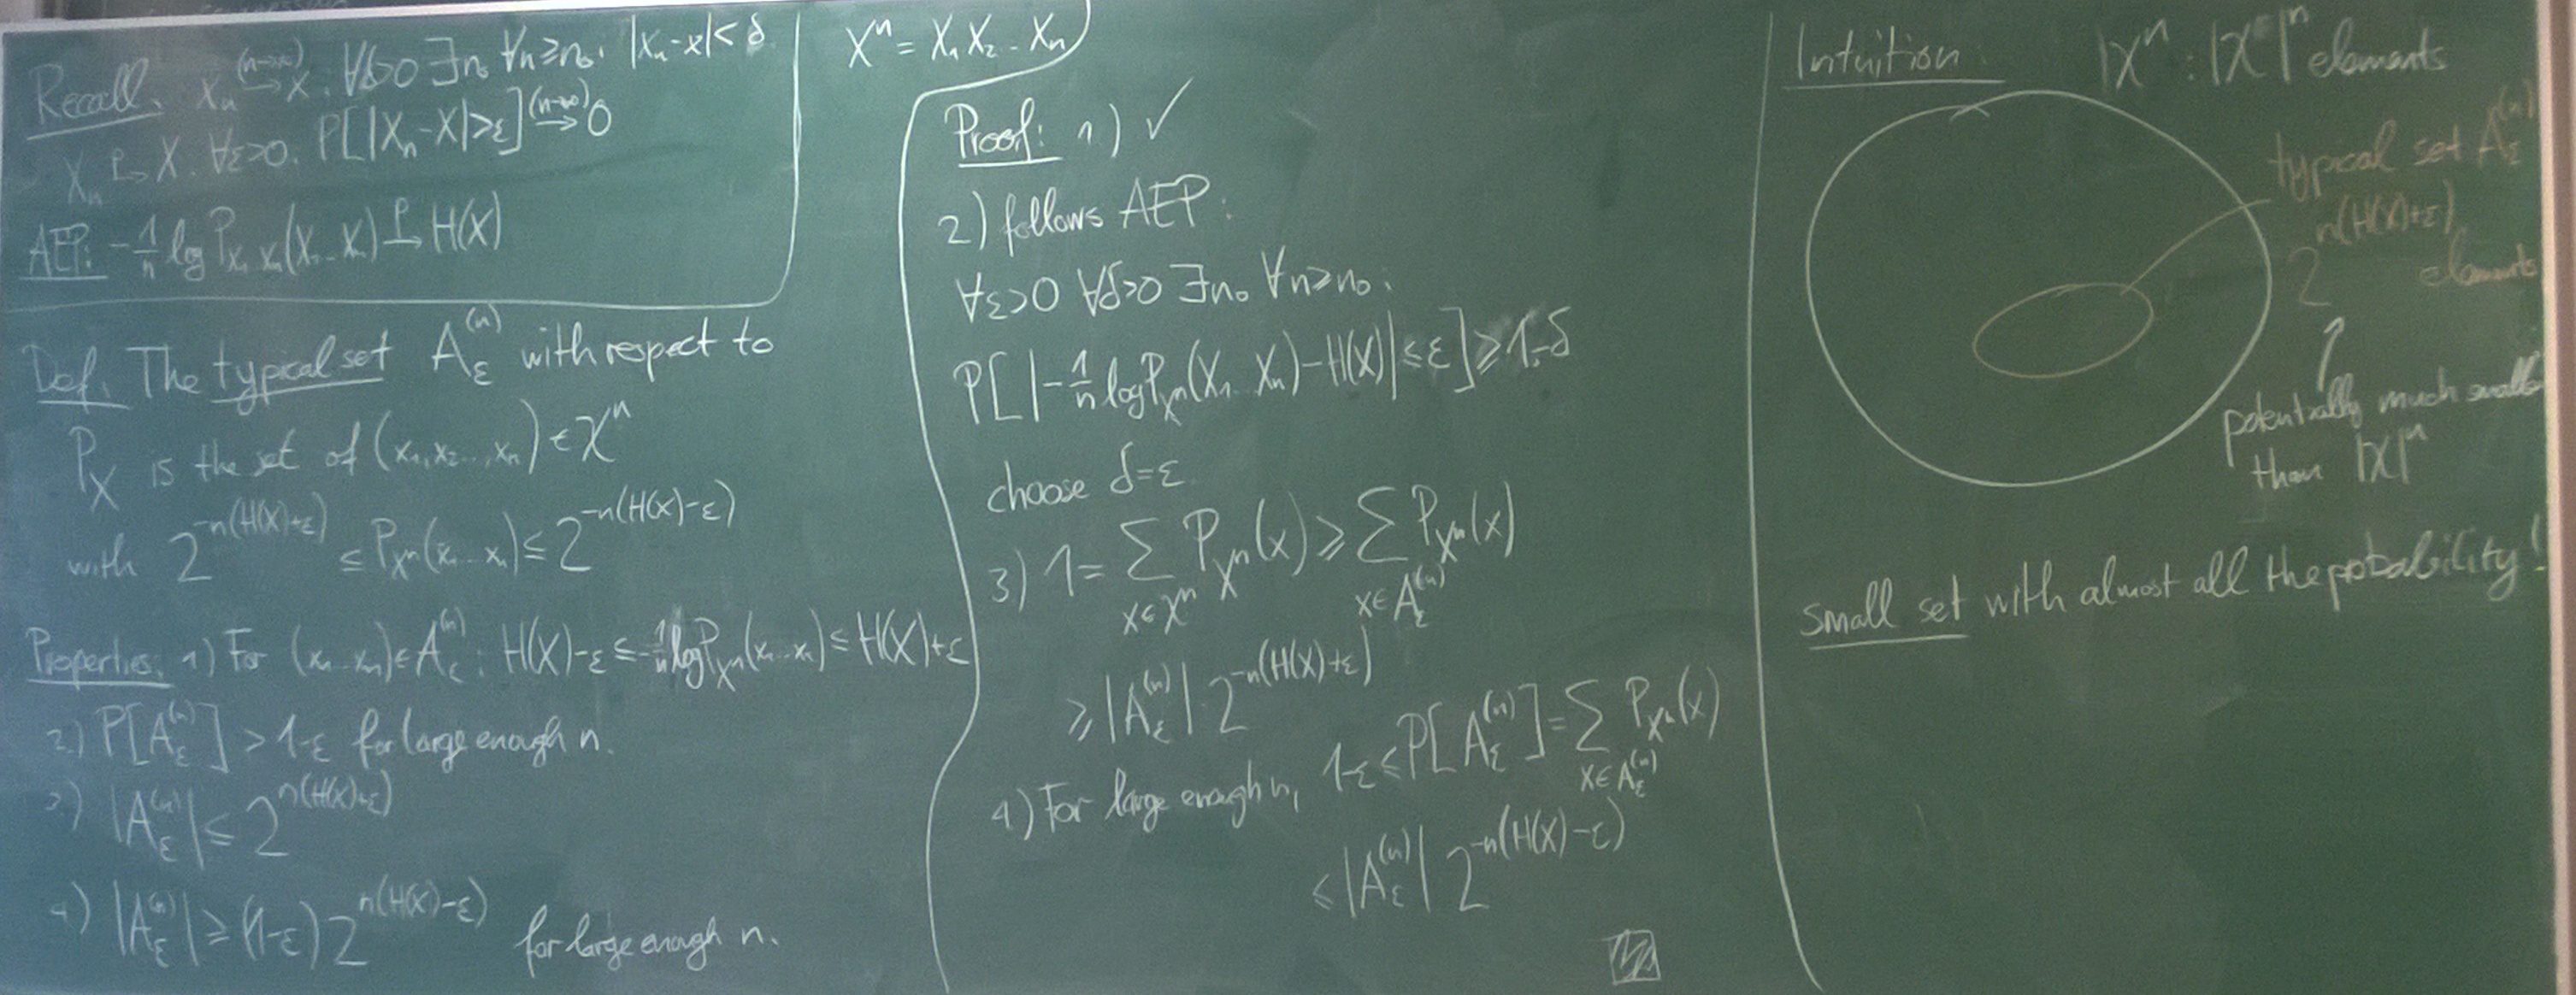 Recall: xₙ →(n→∞) x : ∀δ>0 ∃n₀ ∀n≥n₀: |xₙ-x|<δ
Xₙ →ᴾ X : ∀ε>0: P[|Xₙ-X|>ε] →(n→∞) 0
AEP: -1/n log P_{X₁..Xₙ}(X₁...Xₙ) →ᴾ H(X)
Def: The typical set A_ε^(n) with respect to
P_X is the set of (x₁,x₂...,xₙ) ∈ 𝒳ⁿ
with 2^{-n(H(X)+ε)} ≤ P_{Xⁿ}(x₁...xₙ) ≤ 2^{-n(H(X)-ε)}
Properties: 1) For (x₁...xₙ) ∈ A_ε^(n): H(X)-ε ≤ -1/n log P_{Xⁿ}(x₁...xₙ) ≤ H(X)+ε
2) P[A_ε^(n)] > 1-ε for large enough n.
3) |A_ε^(n)| ≤ 2^{n(H(X)+ε)}
4) |A_ε^(n)| ≥ (1-ε) 2^{n(H(X)-ε)} for large enough n.
Xⁿ = X₁ X₂ .. Xₙ
Proof: 1) ✓
2) follows AEP:
∀ε>0 ∀δ>0 ∃n₀ ∀n≥n₀:
P[|-1/n log P_{Xⁿ}(X₁...Xₙ) - H(X)| ≤ ε] ≥ 1-δ
choose δ=ε
3) 1 = Σ_{x∈𝒳ⁿ} P_{Xⁿ}(x) ≥ Σ_{x∈A_ε^(n)} P_{Xⁿ}(x)
≥ |A_ε^(n)| · 2^{-n(H(X)+ε)}
4) For large enough n, 1-ε ≤ P[A_ε^(n)] = Σ_{x∈A_ε^(n)} P_{Xⁿ}(x)
≤ |A_ε^(n)| 2^{-n(H(X)-ε)}
Intuition: 𝒳ⁿ : |𝒳|ⁿ elements
typical set A_ε^(n)
2^{n(H(X)+ε)} elements
↑
potentially much smaller
than |𝒳|ⁿ
small set with almost all the probability!